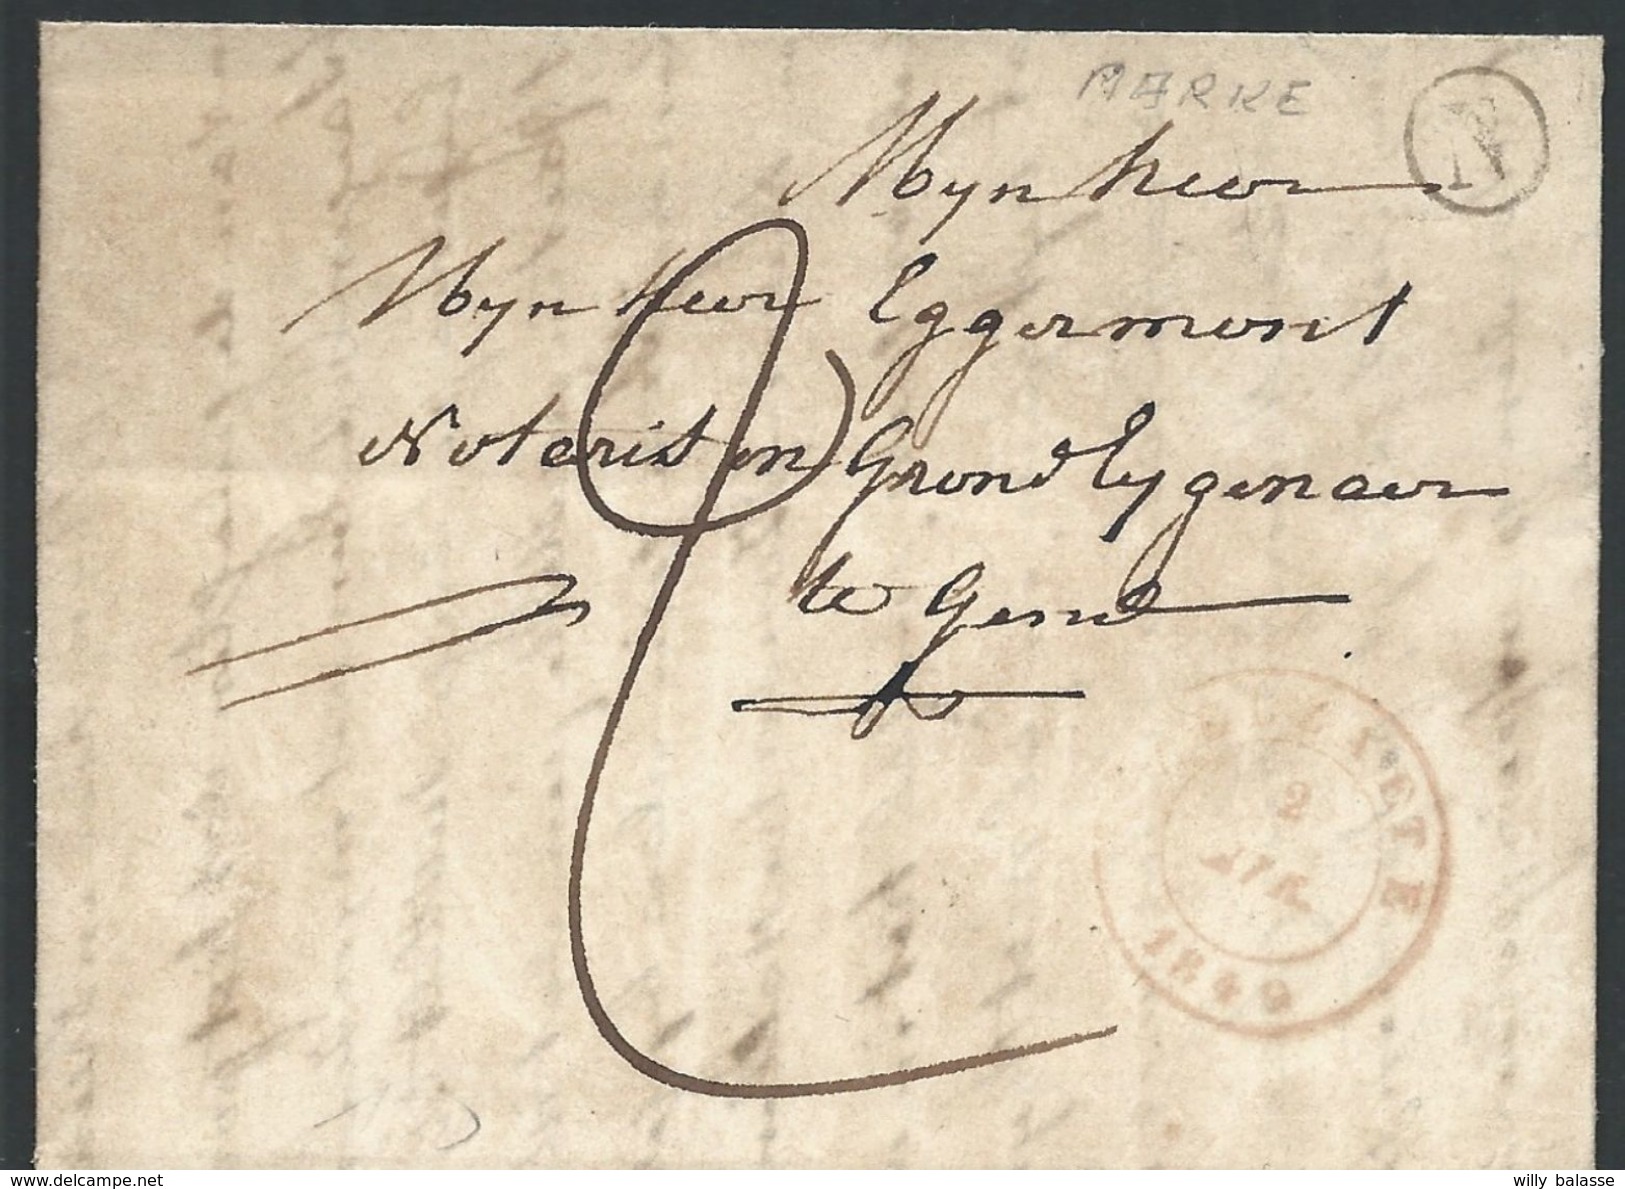 MERKE
N
Mynheer
Mynheer Eggermont
Notaris en Grondeygenaer
te Gend
2
1849
delcampe.net
willy balasse